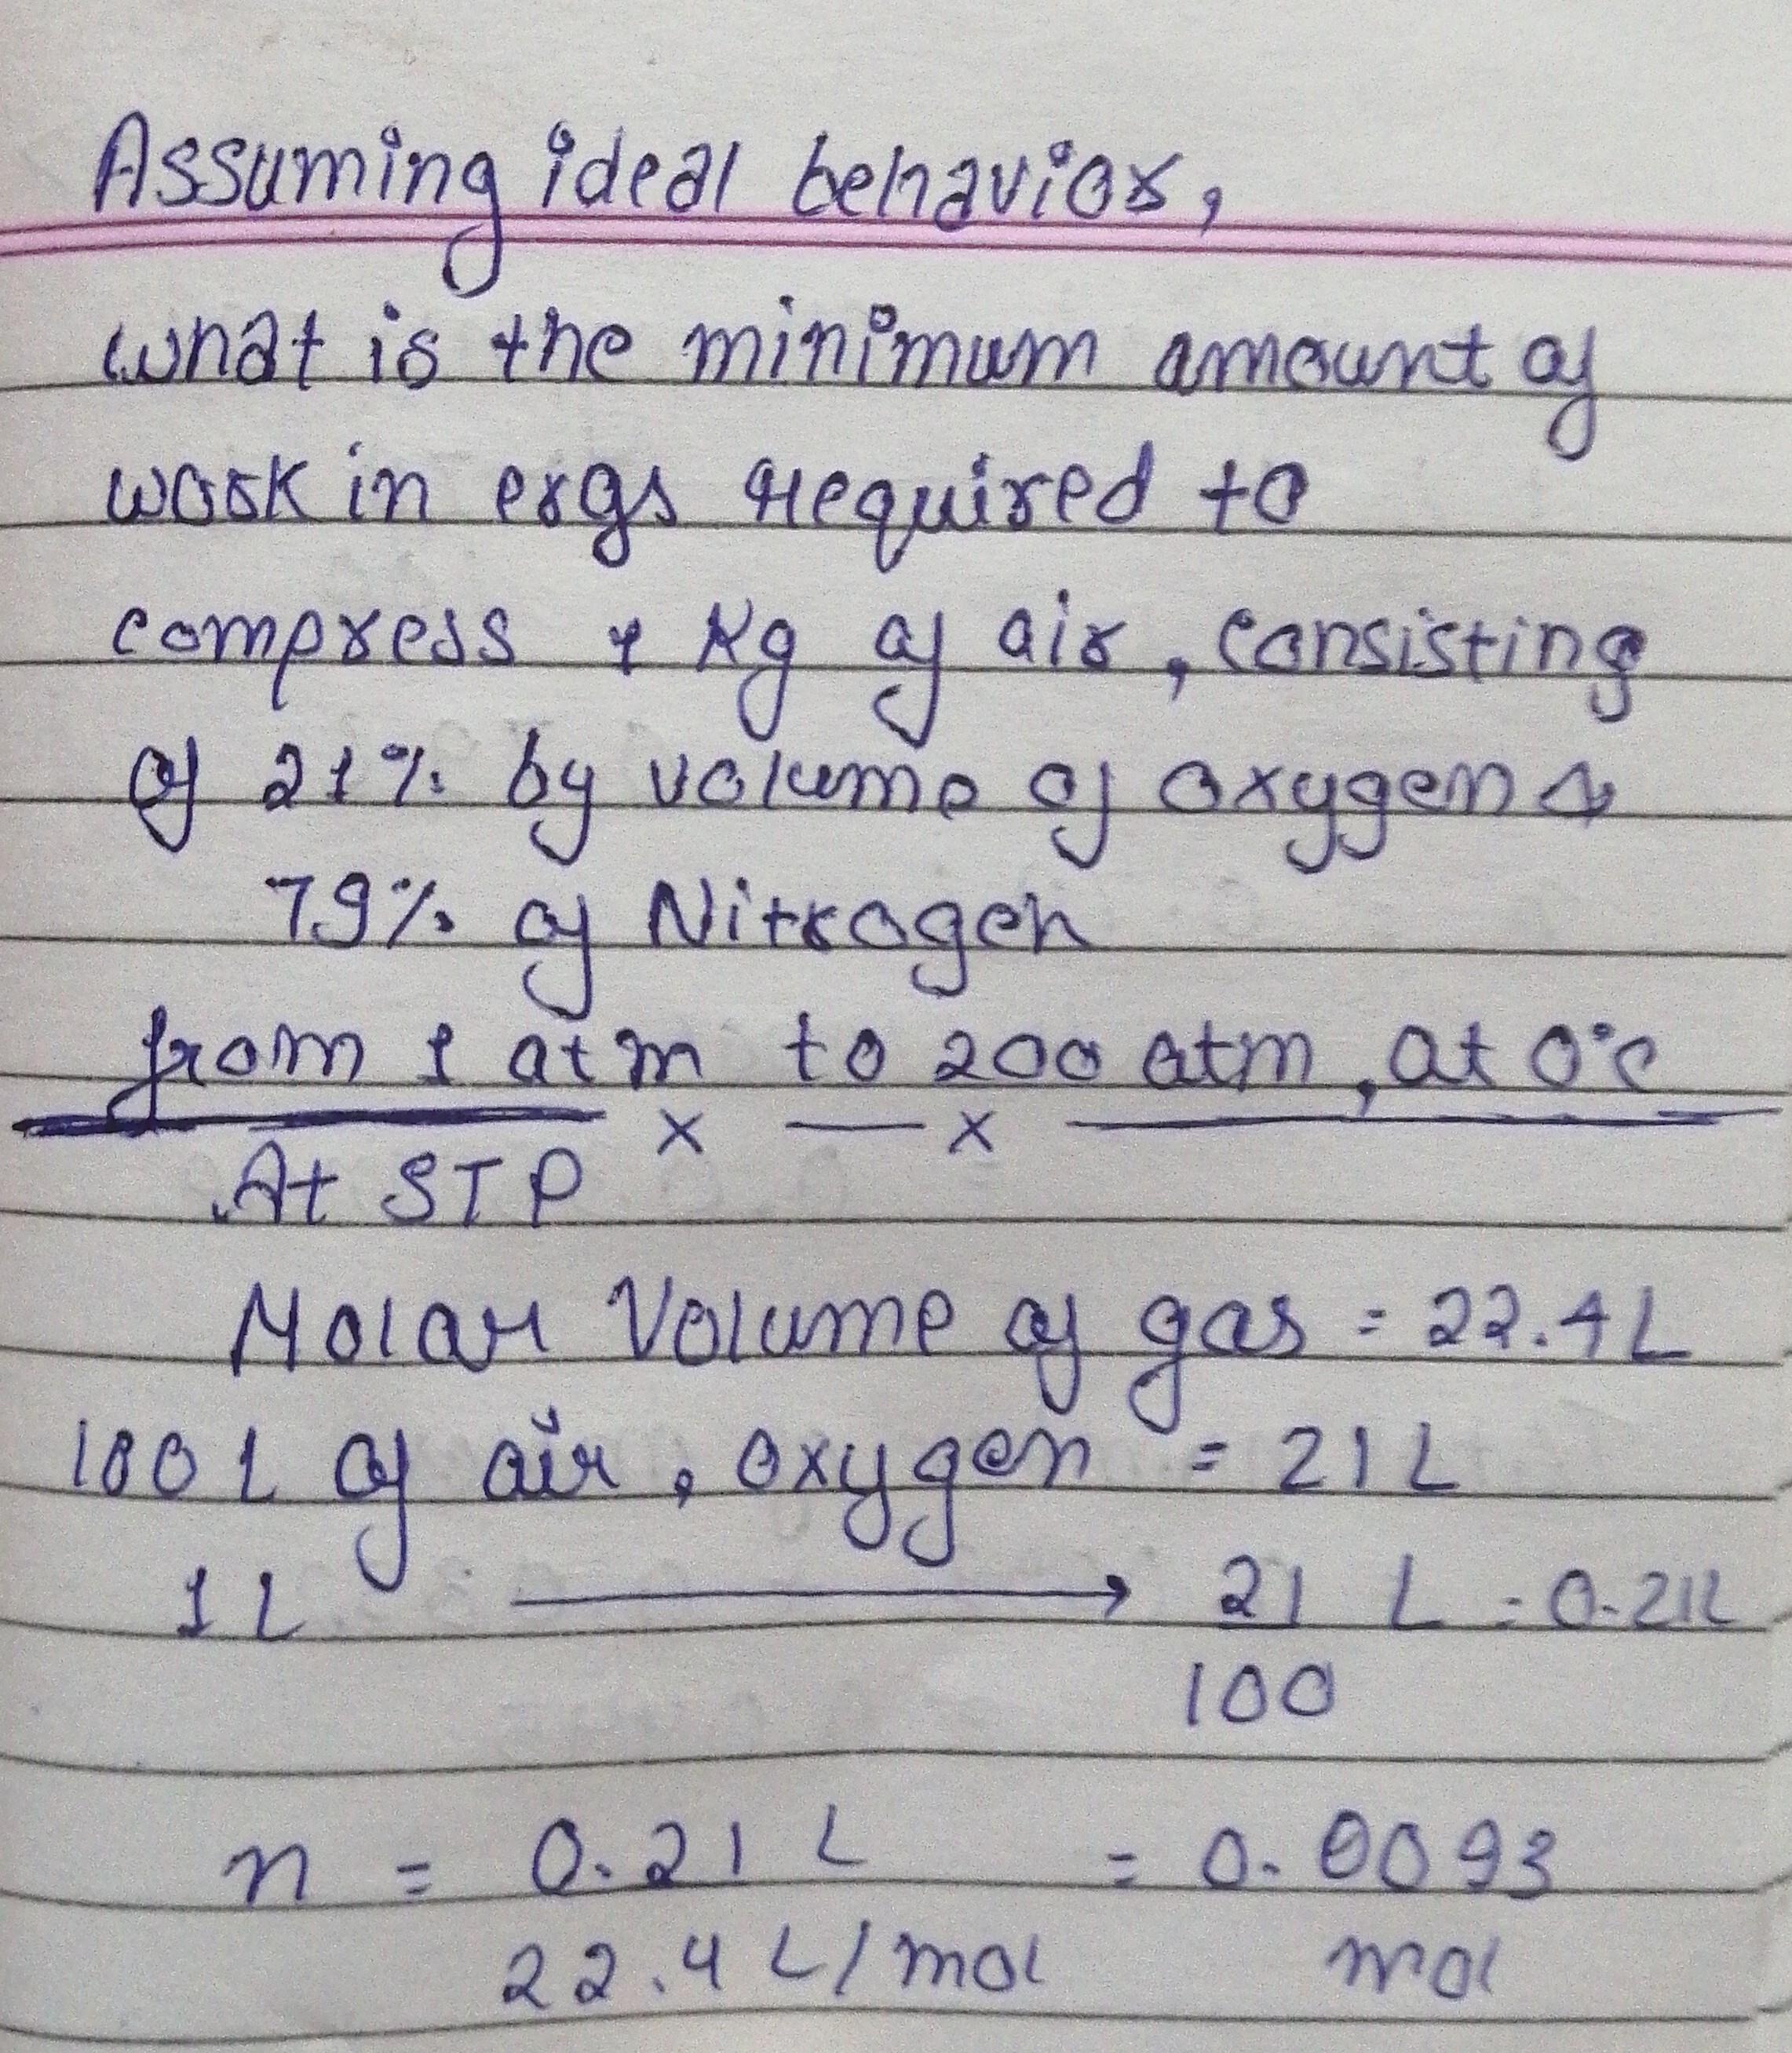 Assuming ideal behavior,
what is the minimum amount of
work in ergs required to
compress 1 Kg of air, consisting
of 21% by volume of oxygen &
79% of Nitrogen
from 1 atm to 200 atm, at 0°C
x — x
At STP
Molar Volume of gas = 22.4 L
100 L of air, oxygen = 21 L
1 L → 21 L = 0.21L
100
n = 0.21 L = 0.0093
22.4 L/mol mol